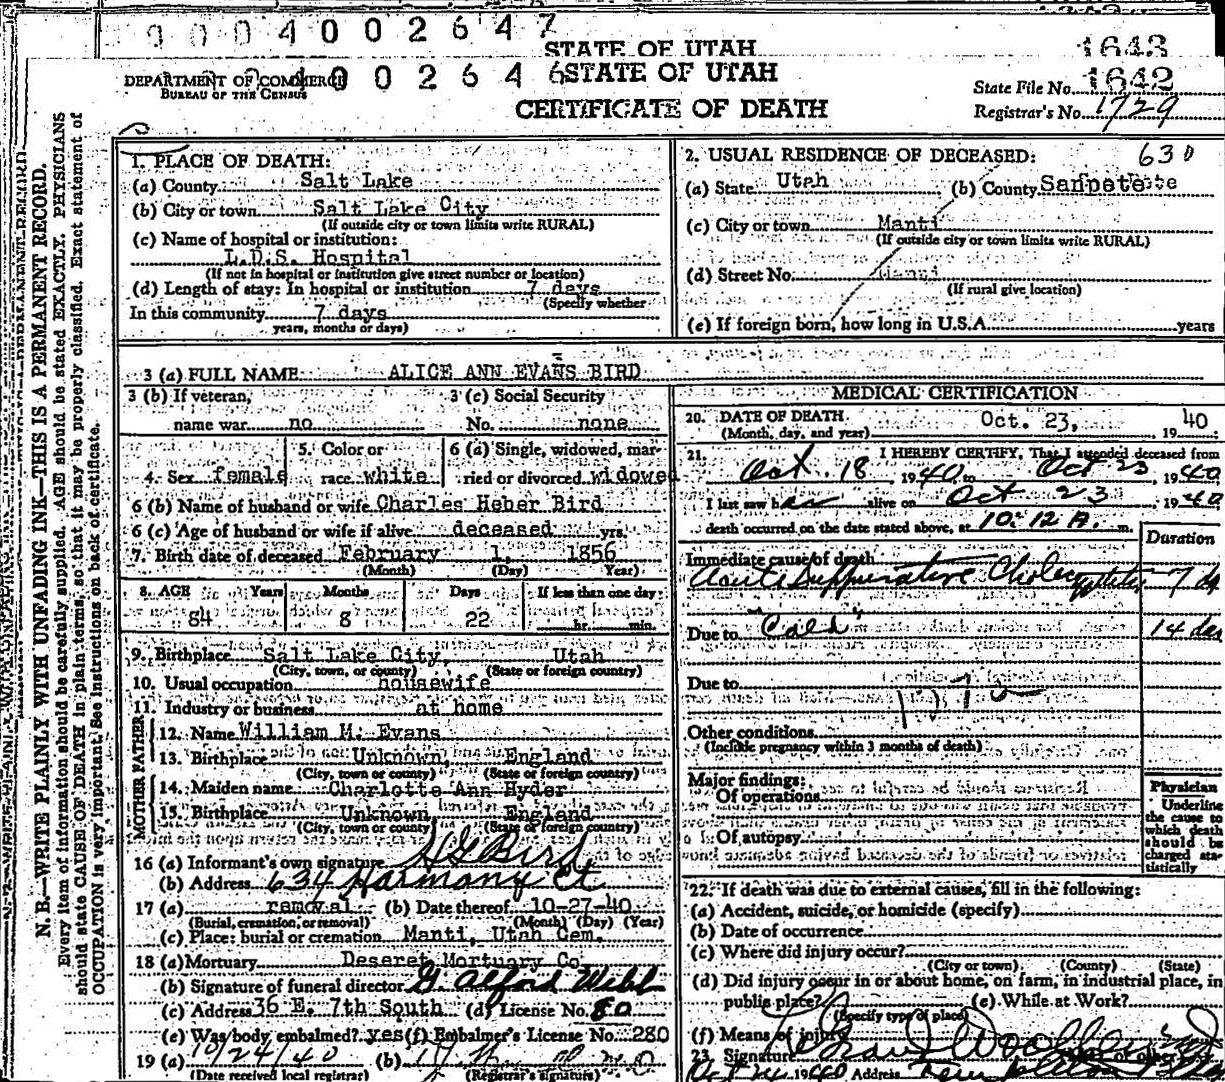 0 0 0 4 0 0 2 6 4 7
STATE OF UTAH 1643
DEPARTMENT OF COMMERCE
BUREAU OF THE CENSUS
4 0 0 2 6 4 6
STATE OF UTAH
CERTIFICATE OF DEATH
State File No. 1642
Registrar's No. 1729
N. B.—WRITE PLAINLY WITH UNFADING INK—THIS IS A PERMANENT RECORD.
Every item of information should be carefully supplied. AGE should be stated EXACTLY. PHYSICIANS
should state CAUSE OF DEATH in plain terms, so that it may be properly classified. Exact statement of
OCCUPATION is very important. See instructions on back of certificate.
1. PLACE OF DEATH:
(a) County Salt Lake
(b) City or town Salt Lake City
(If outside city or town limits write RURAL)
(c) Name of hospital or institution:
L.D.S. Hospital
(If not in hospital or institution give street number or location)
(d) Length of stay: In hospital or institution 7 days
(Specify whether
In this community 7 days
years, months or days)
2. USUAL RESIDENCE OF DECEASED: 630
(a) State Utah (b) County Sanpete
(c) City or town Manti
(If outside city or town limits write RURAL)
(d) Street No. Manti
(If rural give location)
(e) If foreign born, how long in U.S.A. years
3 (a) FULL NAME ALICE ANN EVANS BIRD
3 (b) If veteran,
name war no
3 (c) Social Security
No. none
4. Sex female
5. Color or
race white
6 (a) Single, widowed, mar-
ried or divorced widowed
6 (b) Name of husband or wife Charles Heber Bird
6 (c) Age of husband or wife if alive deceased yrs.
7. Birth date of deceased February 1, 1856
(Month) (Day) Year)
8. AGE Years Months Days If less than one day:
84 8 22 hr. min.
9. Birthplace Salt Lake City, Utah
(City, town, or county) (State or foreign country)
10. Usual occupation housewife
11. Industry or business at home
FATHER
12. Name William M. Evans
13. Birthplace Unknown, England
(City, town or county) (State or foreign country)
MOTHER
14. Maiden name Charlotte Ann Hyder
15. Birthplace Unknown, England
(City, town or county) (State or foreign country)
16 (a) Informant's own signature H G Bird
(b) Address 634 Harmony Ct
17 (a) removal (b) Date thereof 10-27-40
(Burial, cremation, or removal) (Month) (Day) (Year)
(c) Place: burial or cremation Manti, Utah Cem.
18 (a) Mortuary Deseret Mortuary Co.
(b) Signature of funeral director G. Alford Webb
(c) Address 36 E. 7th South (d) License No. 80
(e) Was body embalmed? yes (f) Embalmer's License No. 280
19 (a) 10/24/40 (b)
(Date received local registrar) (Registrar's signature)
MEDICAL CERTIFICATION
20. DATE OF DEATH Oct. 23, 1940
(Month, day, and year)
21. I HEREBY CERTIFY, That I attended deceased from
Oct. 18, 1940 to Oct 23, 1940
I last saw her alive on Oct 23, 1940
death occurred on the date stated above, at 10:12 A. m.
Duration
Immediate cause of death
Acute Suppurative Cholecystitis 7 da
Due to "Cold" 14 da
Due to
Other conditions
(Include pregnancy within 3 months of death)
Major findings:
Of operations
Of autopsy
Physician
Underline
the cause to
which death
should be
charged sta-
tistically
22. If death was due to external causes, fill in the following:
(a) Accident, suicide, or homicide (specify)
(b) Date of occurrence
(c) Where did injury occur?
(City or town) (County) (State)
(d) Did injury occur in or about home, on farm, in industrial place, in
public place? (e) While at Work?
(Specify type of place)
(f) Means of injury
23. Signature
1940 Address